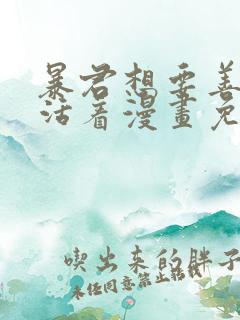 暴君想要善
活看漫畫免
喫出来的胖子
未经同意禁止转载